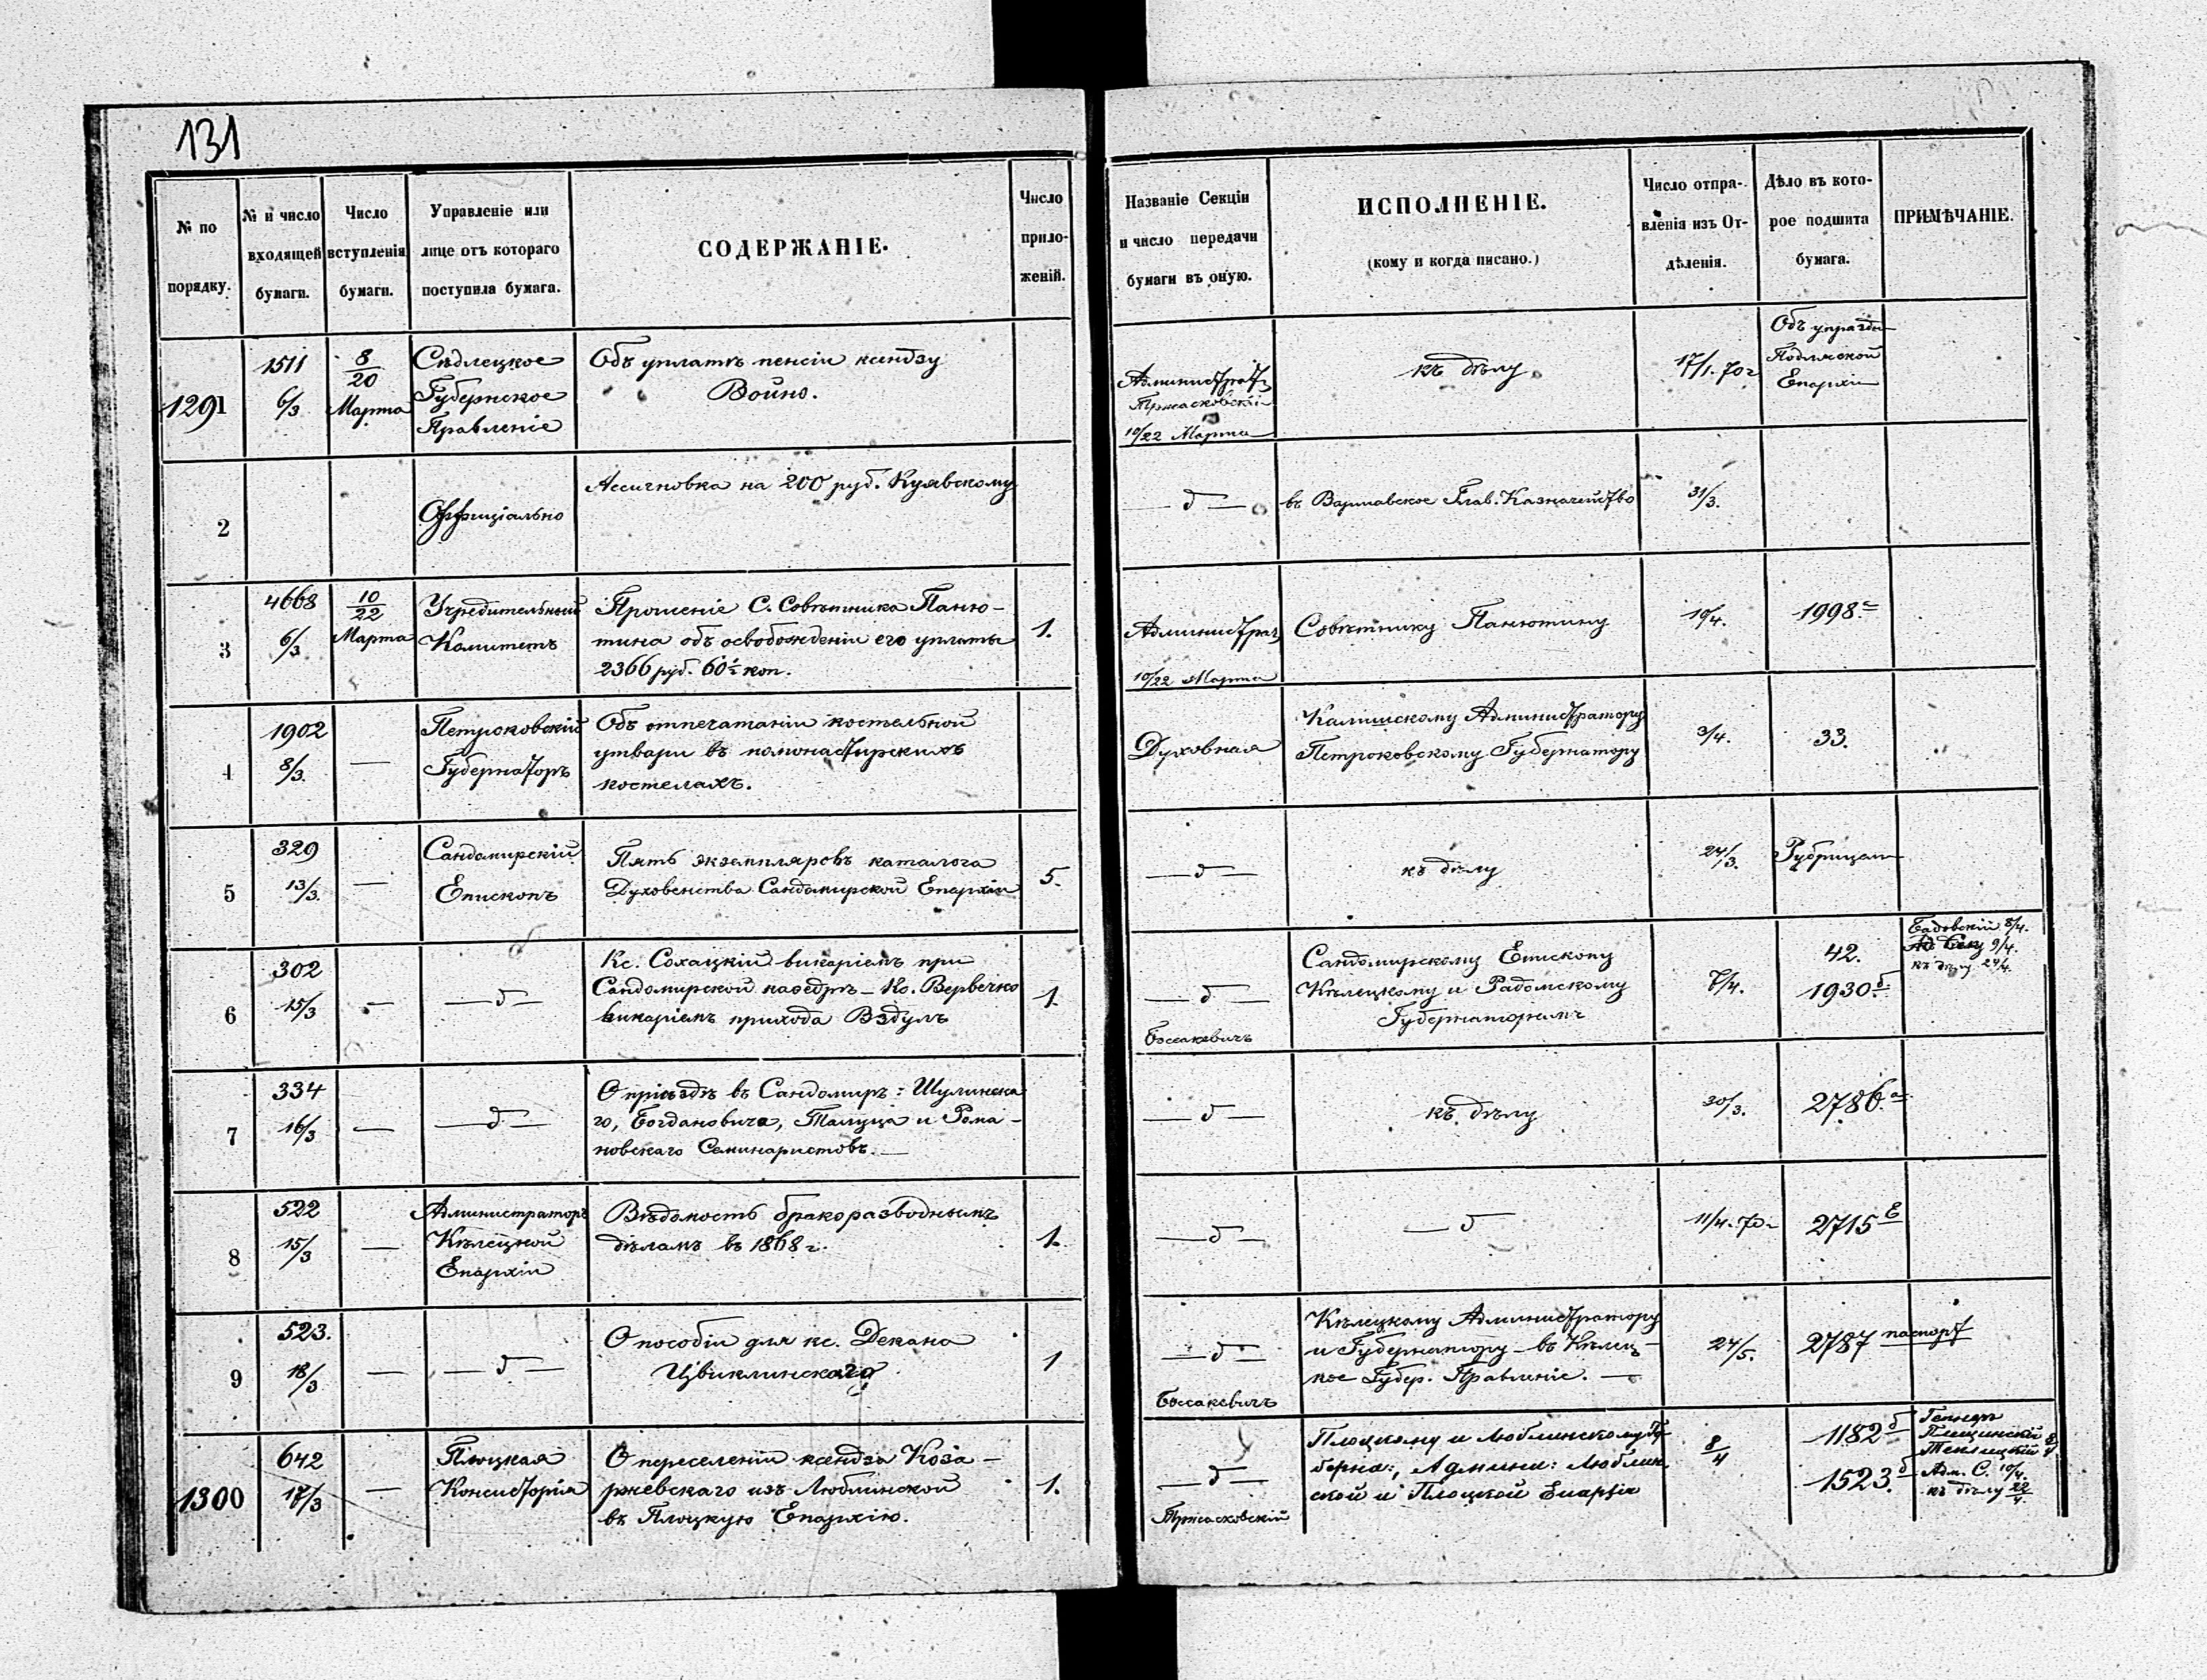 131
№ по порядку.
№ и число входящей бумаги.
Число вступленія бумаги.
Управленіе или лице отъ котораго поступила бумага.
СОДЕРЖАНІЕ.
Число приложеній.
Названіе Секціи и число передачи бумаги въ оную.
ИСПОЛНЕНІЕ.
(кому и когда писано.)
Число отпра-
вленія изъ От-
дѣленія.
Дѣло въ кото-
рое подшита
бумага.
ПРИМѢЧАНІЕ.
1291
1511
6/3
8/20
Марта
Сѣдлецкое
Губернское
Правленіе
Объ уплатѣ пенсіи ксендзу
Войно.
Администрат.
Тржасковскій
10/22 Марта
къ дѣлу
17/1. 70 г
Объ упраздн
Подляской
Епархіи
2
Оффиціально
Ассигновка на 200 руб. Куявскому
— д —
въ Варшавское Глав. Казначейство
31/3.
3
4668
6/3
10/22
Марта
Учредительный
Комитетъ
Прошеніе С. Совѣтника Паню-
тина объ освобожденіи его уплаты
2366 руб. 60½ коп.
1.
Администрат
10/22 Марта
Совѣтнику Панютину
19/4.
1998 а
4
1902
8/3.
—
Петроковскій
Губернаторъ
Объ отпечатаніи костельной
утвари въ помонастырскихъ
костелахъ.
Духовная
Калишскому Администратору
Петроковскому Губернатору
3/4.
33.
5
329
13/3.
—
Сандомирскій
Епископъ
Пять экземпляровъ каталога
Духовенства Сандомирской Епархіи
5.
— д —
къ дѣлу
24/3.
Рубрицели
6
302
15/3
—
— д —
Кс. Сохацкій викаріемъ при
Сандомирской каѳедрѣ — Кс. Вервечко
викаріемъ прихода Вздулъ
1.
— д —
Боссакевичъ
Сандомирскому Епископу
Кѣлецкому и Радомскому
Губернаторамъ
7/4.
42.
1930 б
8/4.
9/4.
къ дѣлу 24/4.
7
334
16/3
—
— д —
О пріѣздѣ въ Сандомиръ: Шулинска
го, Богдановича, Талуца и Рома-
новскаго Семинаристовъ. —
— д —
къ дѣлу
30/3.
2786. а
8
522
15/3
—
Администраторъ
Кѣлецкой
Епархіи
Вѣдомость бракоразводнымъ
дѣламъ въ 1868 г.
1.
— д —
— д —
11/4. 70 г
2715 Е
9
523.
18/3
—
— д —
О пособіи для кс. Декана
Цвиклинскаго
1
— д —
Боссакевичъ
Кѣлецкому Администратору
и Губернатору — въ Кѣлец-
кое Губер. Правленіе. —
24/5.
2787 паспорт
1300
642
17/3
—
Плоцкая
Консисторія
О переселеніи ксендза Коза-
ржевскаго изъ Люблинской
въ Плоцкую Епархію.
1.
— д —
Тржасковскій
Плоцкому и Люблинскому Гу
берна:, Админи: Люблин
ской и Плоцкой Епархіи
8/4
1182 б
1523. б
Адм. С. 10/4.
къ дѣлу 22/4.